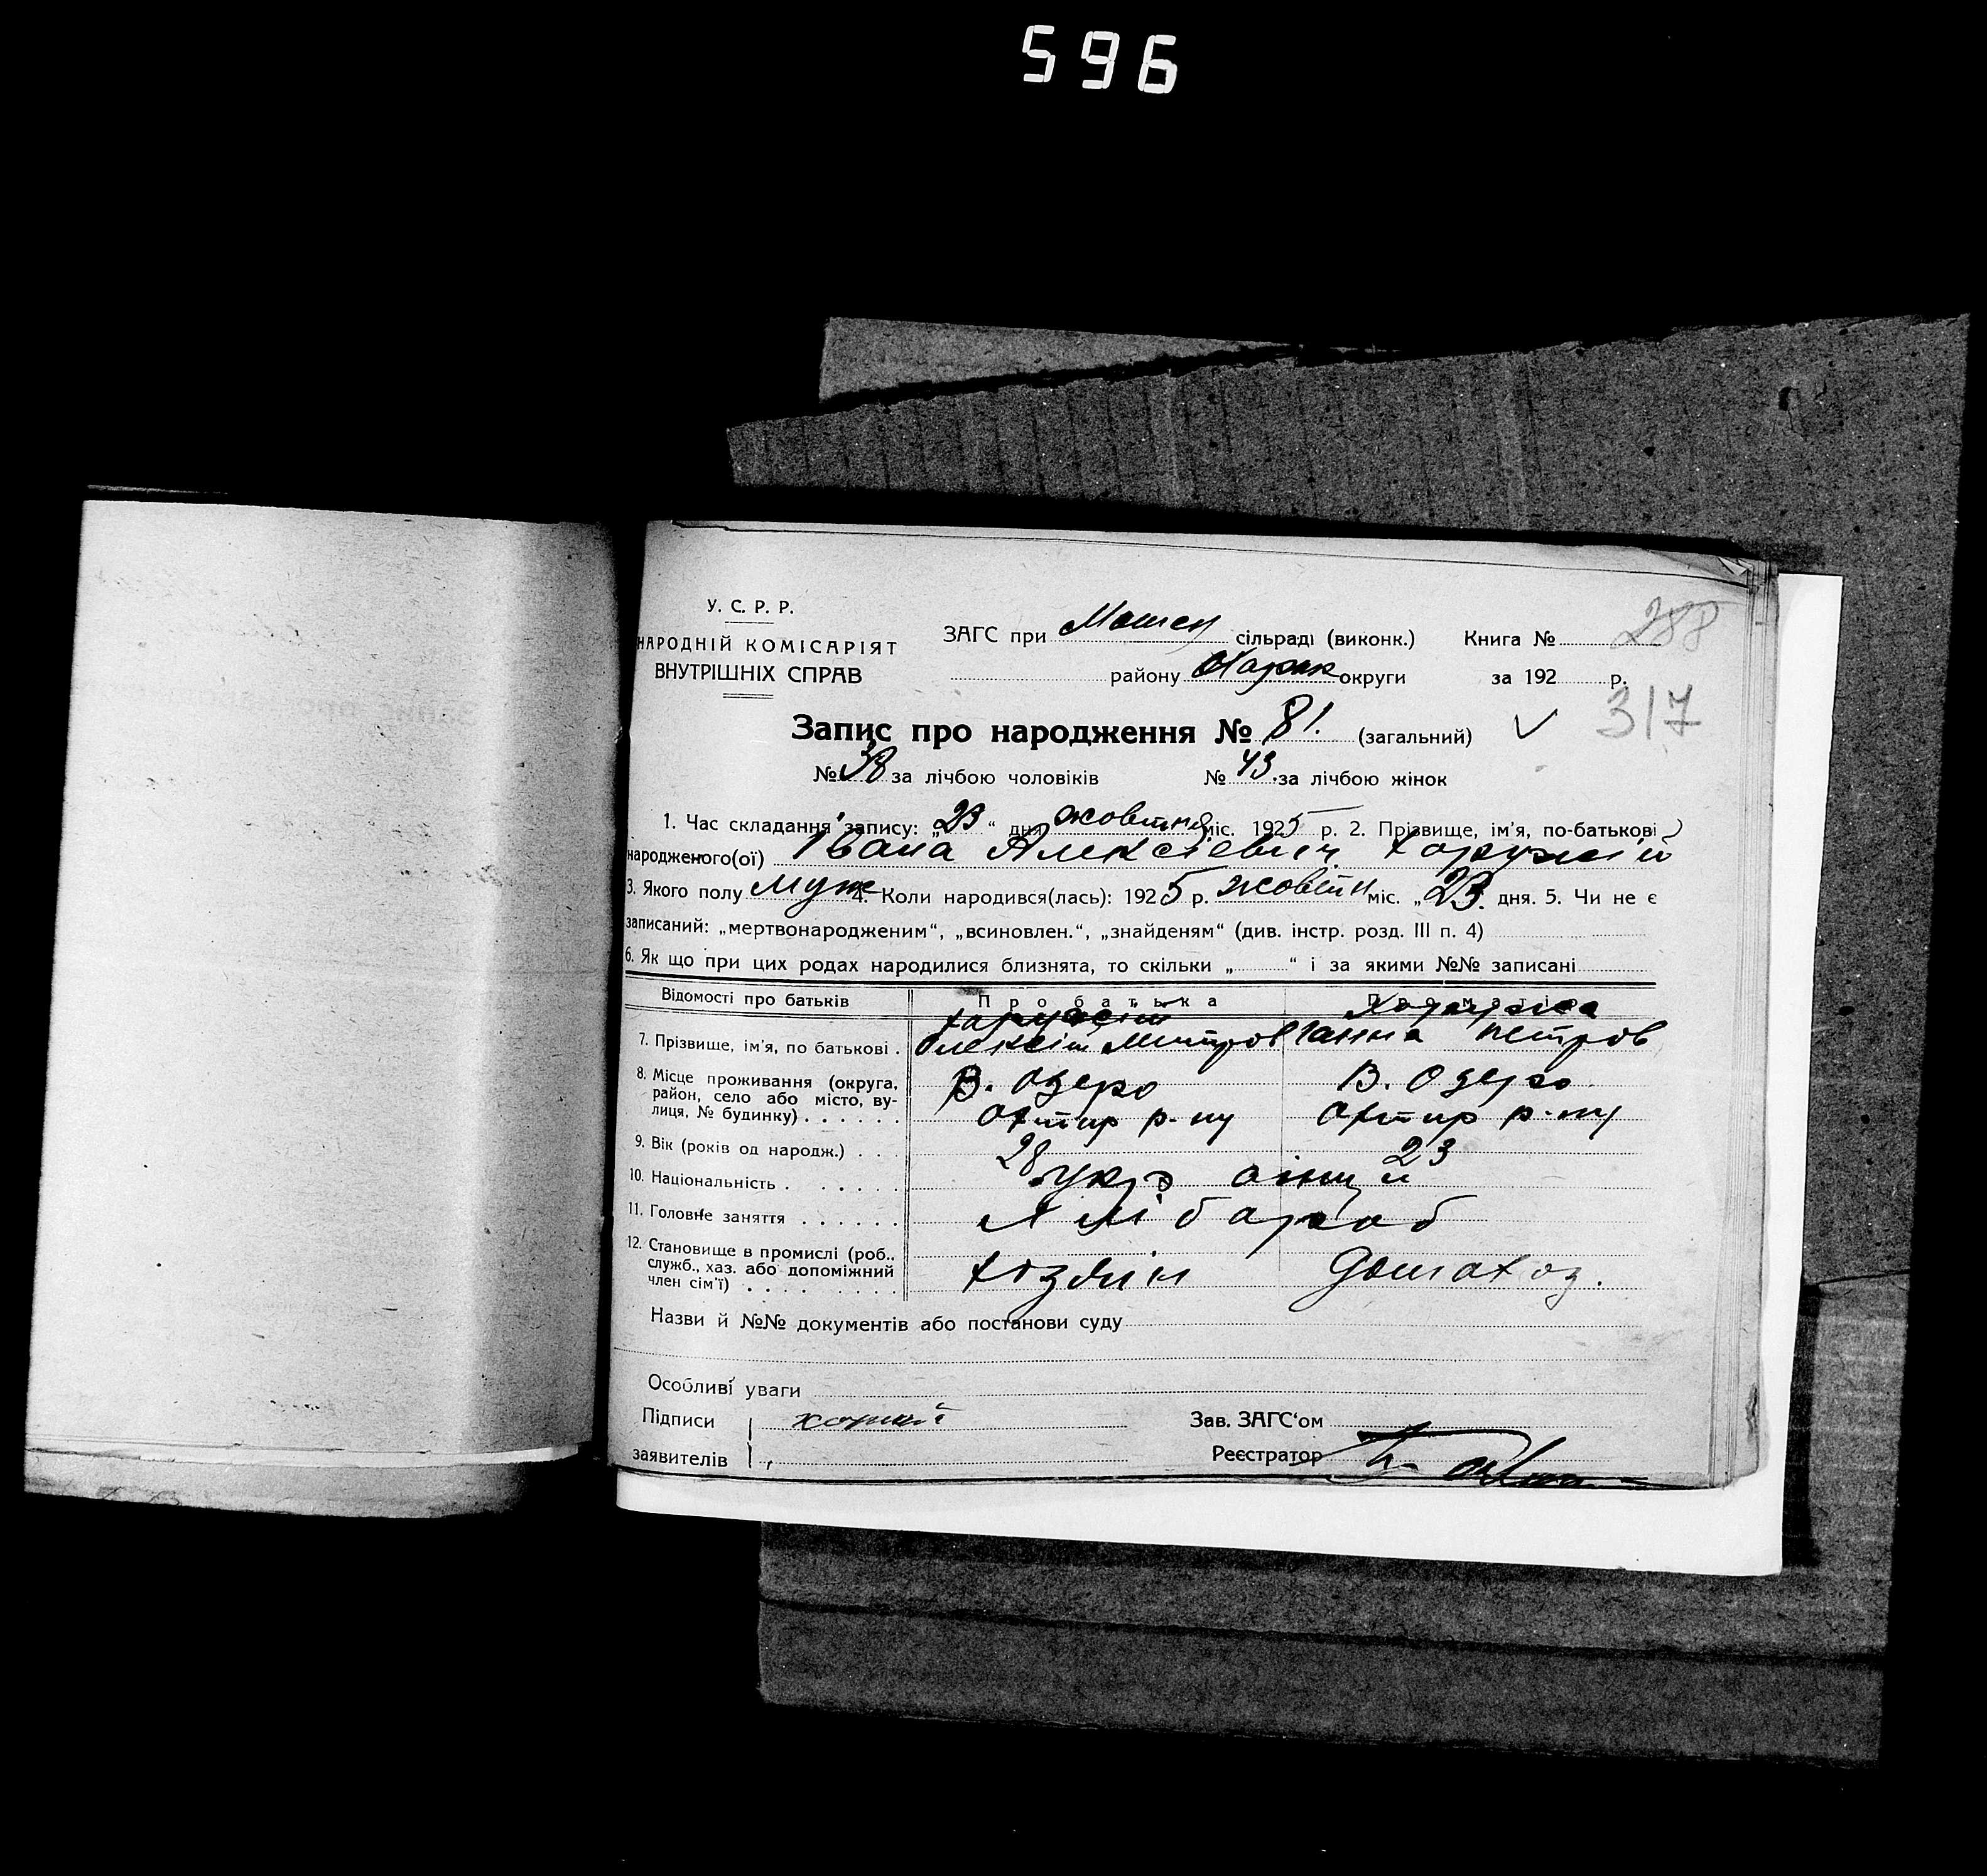 596
У. С. Р. Р.
НАРОДНІЙ КОМІСАРІЯТ
ВНУТРІШНІХ СПРАВ
ЗАГС при Мошен сільраді (виконк.) Книга № 288
району Харьк округи за 192 р.
317
Запис про народження № 81. (загальний)
№ 38 за лічбою чоловіків № 43. за лічбою жінок
1. Час складання запису: „23“ дня жовтня міс. 1925 р. 2. Прізвище, ім'я, по-батькові
народженого(ої) Івана Алексієвич Харужій
3. Якого полу муж 4. Коли народився(лась): 1925 р. жовтн міс. „23. дня. 5. Чи не є
записаний: „мертвонародженим“, „всиновлен.“, „знайденям“ (див. інстр. розд. III п. 4)
6. Як що при цих родах народилися близнята, то скільки „ “ і за якими №№ записані
Відомості про батьків Про батька Про матір
7. Прізвище, ім'я, по батькові . Харужій Олексій Митров Ганна Петров
8. Місце проживання (округа, район, село або місто, вулиця, № будинку) . . . . . . В. Озеро Охтир р-ну В. Озеро Охтир р-ну
9. Вік (років од народж.) . . . 28 23
10. Національність . . . . . . укр
11. Головне заняття . . . . . . хлібароб
12. Становище в промислі (роб., служб., хаз. або допоміжний член сім'ї) . . . . . . . . хозяин Домахоз.
Назви й №№ документів або постанови суду
Особливі уваги
Підписи
заявителів
Зав. ЗАГС'ом
Реєстратор